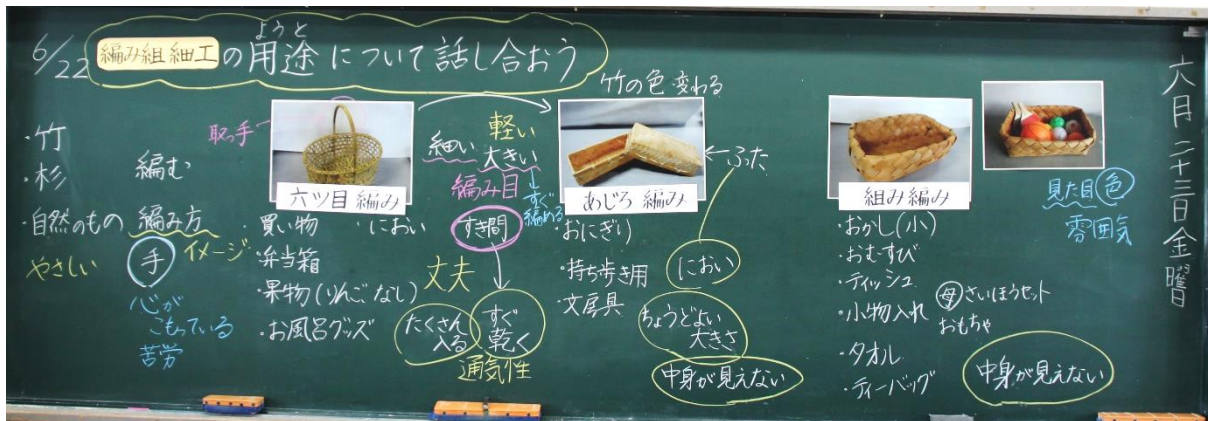 6/22
編み組細工の用途について話し合おう
ようと
・竹
・杉
・自然のもの
やさしい
編む
編み方
手
イメージ
心が
こもっている
苦労
取っ手
六ツ目編み
・買い物
・弁当箱
・果物(りんごなし)
・お風呂グッズ
・におい
細い
軽い
大きい
編み目
すぐ
編める
すき間
丈夫
たくさん
入る
すぐ
乾く
通気性
竹の色変わる
あじろ編み
・おにぎり
・持ち歩き用
・文房具
ふた
におい
ちょうどよい
大きさ
中身が見えない
組み編み
・おかし(小)
・おむすび
・ティッシュ
・小物入れ
母さいほうセット
おもちゃ
・タオル
・ティーバッグ
中身が見えない
見た目色
雰囲気
六月二十三日金曜